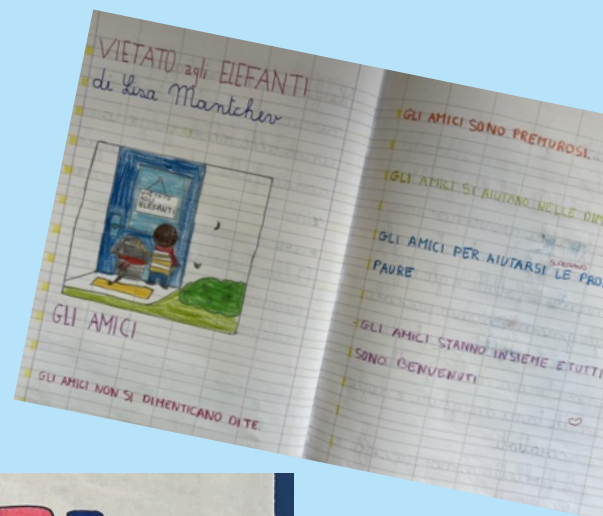 VIETATO agli ELEFANTI
di Lisa Mantchev
VIETATO
AGLI
ELEFANTI
GLI AMICI
GLI AMICI NON SI DIMENTICANO DI TE.
GLI AMICI SONO PREMUROSI.
GLI AMICI SI AIUTANO NELLE
GLI AMICI PER AIUTARSI LE
PAURE
GLI AMICI STANNO INSIEME E TUTTI
SONO BENVENUTI